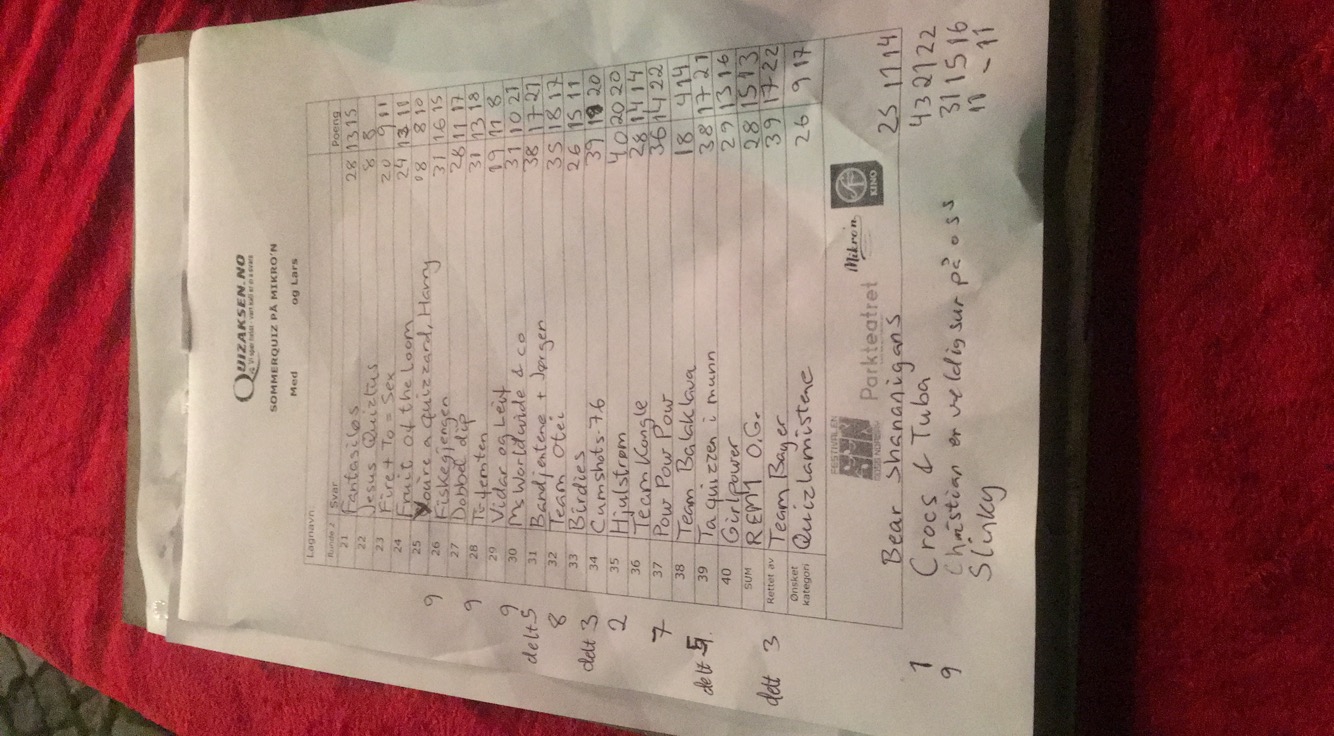 QUIZAKSEN.NO
SOMMERQUIZ PÅ MIKRO'N
Med og Lars
Lagnavn:
Runde 2 Svar Poeng
21 Fantasilos 28 13 15
22 Jesus Quiztus 8 8
23 Fire + To = Sex 20 9 11
24 Fruit of the Loom 24 13 11
25 Youire a quizzard, Harry 18 8 10
26 Fiskegjengen 31 16 15
9
27 Dobbel dip 28 11 17
28 Tufemten 31 13 18
9
29 Vidar og Leif 19 11 8
30 Ms Worldwide & co 31 10 21
9
31 Bandjentene + Jørgen 38 17 21
delt 5
32 Team Otei 35 18 17
8
33 Birdies 26 15 11
34 Cumshots-76 39 19 20
delt 3
35 Hjulstrøm 40 20 20
2
36 Team Kongle 28 14 14
37 Pow Pow Pow 36 14 22
7
38 Team Balaklava 18 4 14
39 Ta quizzen i munn 38 17 21
delt 5
40 Girlpower 29 13 16
SUM REMY O.G. 28 15 13
Rettet av Team Bayer 39 17 22
delt 3
Ønsket kategori Quizlamistene 26 9 17
FESTIVALEN
Parkteatret
Mikro'n
KINO
Bear Shananigans 25 11 14
1 Crocs & Tuba 43 21 22
9 Christian er veldig sur på oss 31 15 16
Slinky 11 - 11